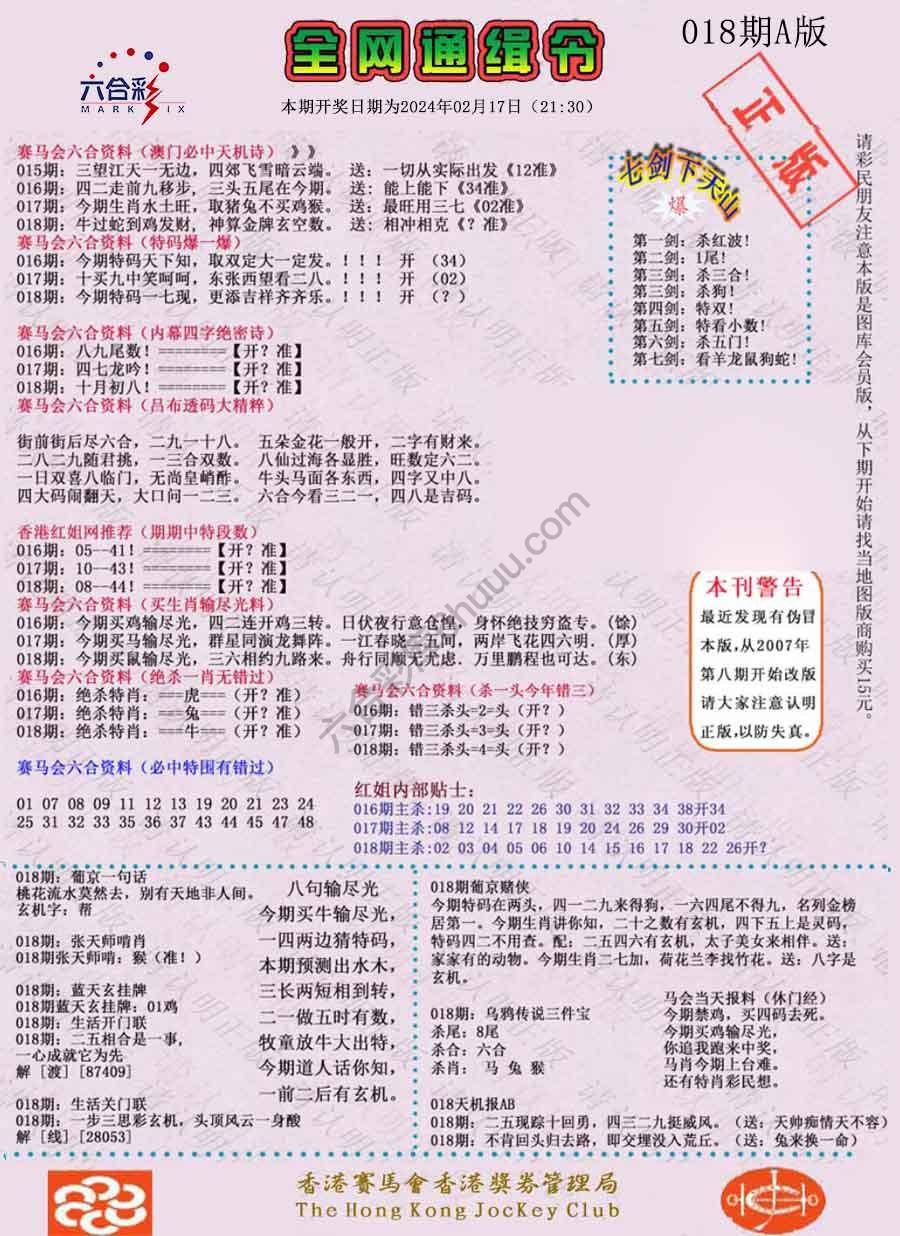 六合彩
MARK SIX
全网通缉令
018期A版
本期开奖日期为2024年02月17日（21:30）
正版
赛马会六合资料（澳门必中天机诗）》》
015期: 三望江天一无边，四郊飞雪暗云端。 送: 一切从实际出发《12准》
016期: 四二走前九移步, 三头五尾在今期。 送: 能上能下《34准》
017期: 今期生肖水土旺，取猪兔不买鸡猴。 送: 最旺用三七《02准》
018期: 牛过蛇到鸡发财, 神算金牌玄空数。 送: 相冲相克《？准》
赛马会六合资料（特码爆一爆）
016期: 今期特码天下知，取双定大一定发。！！！ 开 （34）
017期: 十买九中笑呵呵，东张西望看二八。！！！ 开 （02）
018期: 今期特码一七现，更添吉祥齐齐乐。！！！ 开 （？）
赛马会六合资料（内幕四字绝密诗）
016期: 八九尾数！========【开？准】
017期: 四七龙吟！========【开？准】
018期: 十月初八！========【开？准】
赛马会六合资料（吕布透码大精粹）
街前街后尽六合，二九一十八。 五朵金花一般开，二字有财来。
二八二九随君挑，一三合双数。 八仙过海各显胜，旺数定六二。
一日双喜八临门，无尚皇峭酢。 牛头马面各东西，四字又中八。
四大码闹翻天，大口问一二三。 六合今看三二一，四八是吉码。
香港红姐网推荐（期期中特段数）
016期: 05--41！========【开？准】
017期: 10--43！========【开？准】
018期: 08--44！========【开？准】
赛马会六合资料（买生肖输尽光料）
016期: 今期买鸡输尽光，四二连开鸡三转。日伏夜行意仓惶，身怀绝技穷盗专。(馀)
017期: 今期买马输尽光，群星同演龙舞阵。一江春晓一五间，两岸飞花四六明．(厚)
018期: 今期买鼠输尽光，三六相约九路来。舟行同顺无尤虑．万里鹏程也可达。(东)
赛马会六合资料（绝杀一肖无错过）
016期: 绝杀特肖: ===虎===（开？准）
017期: 绝杀特肖: ===兔===（开？准）
018期: 绝杀特肖: ===牛===（开？准）
赛马会六合资料（杀一头今年错三）
016期: 错三杀头=2=头（开？）
017期: 错三杀头=3=头（开？）
018期: 错三杀头=4=头（开？）
赛马会六合资料（必中特围有错过）
01 07 08 09 11 12 13 19 20 21 23 24
25 31 32 33 35 36 37 43 44 45 47 48
红姐内部贴士:
016期主杀:19 20 21 22 26 30 31 32 33 34 38开34
017期主杀:08 12 14 17 18 19 20 24 26 29 30开02
018期主杀:02 03 04 05 06 10 14 15 16 17 18 22 26开?
七剑下天山
爆
第一剑: 杀红波!
第二剑: 1尾!
第三剑: 杀三合!
第三剑: 杀狗!
第四剑: 特双!
第五剑: 特看小数!
第六剑: 杀五门!
第七剑: 看羊龙鼠狗蛇!
请彩民朋友注意本版是图库会员版，从下期开始请找当地图版商购买15元。
本刊警告
最近发现有伪冒
本版,从2007年
第八期开始改版
请大家注意认明
正版,以防失真。
018期: 葡京一句话
桃花流水莫然去，别有天地非人间。
玄机字: 帮
018期: 张天师啃肖
018期张天师啃: 猴（准！）
018期: 蓝天玄挂牌
018期蓝天玄挂牌: 01鸡
018期: 生活开门联
018期: 二五相合是一事，
一心成就它为先
解 [渡] [87409]
018期: 生活关门联
018期: 一步三思彩玄机，头顶风云一身酸
解 [线] [28053]
八句输尽光
今期买牛输尽光，
一四两边猜特码，
本期预测出水木，
三长两短相到转，
二一做五时有数，
牧童放牛大出特，
今期道人话你知，
一前二后有玄机。
018期葡京赌侠
今期特码在两头，四一二九来得狗，一六四尾不得九，名列金榜
居第一。今期生肖讲你知，二十之数有玄机，四下五上是灵码，
特码四二不用查。配: 二五四六有玄机，太子美女来相伴。送:
家家有的动物。今期生肖二七加，荷花兰李找竹花。送: 八字是
玄机。
018期: 乌鸦传说三件宝
杀尾: 8尾
杀合: 六合
杀肖: 马 兔 猴
马会当天报料（休门经）
今期禁鸡，买四码去死。
今期买鸡输尽光，
你追我跑来中奖，
马肖今期上台难。
还有特肖彩民想。
018天机报AB
018期: 二五现踪十回勇，四三二九挺威风。（送: 天帅痴情天不容）
018期: 不肯回头归去路，即交埋没入荒丘。（送: 兔来换一命）
香港賽馬會香港獎券管理局
The Hong Kong JocKey Club